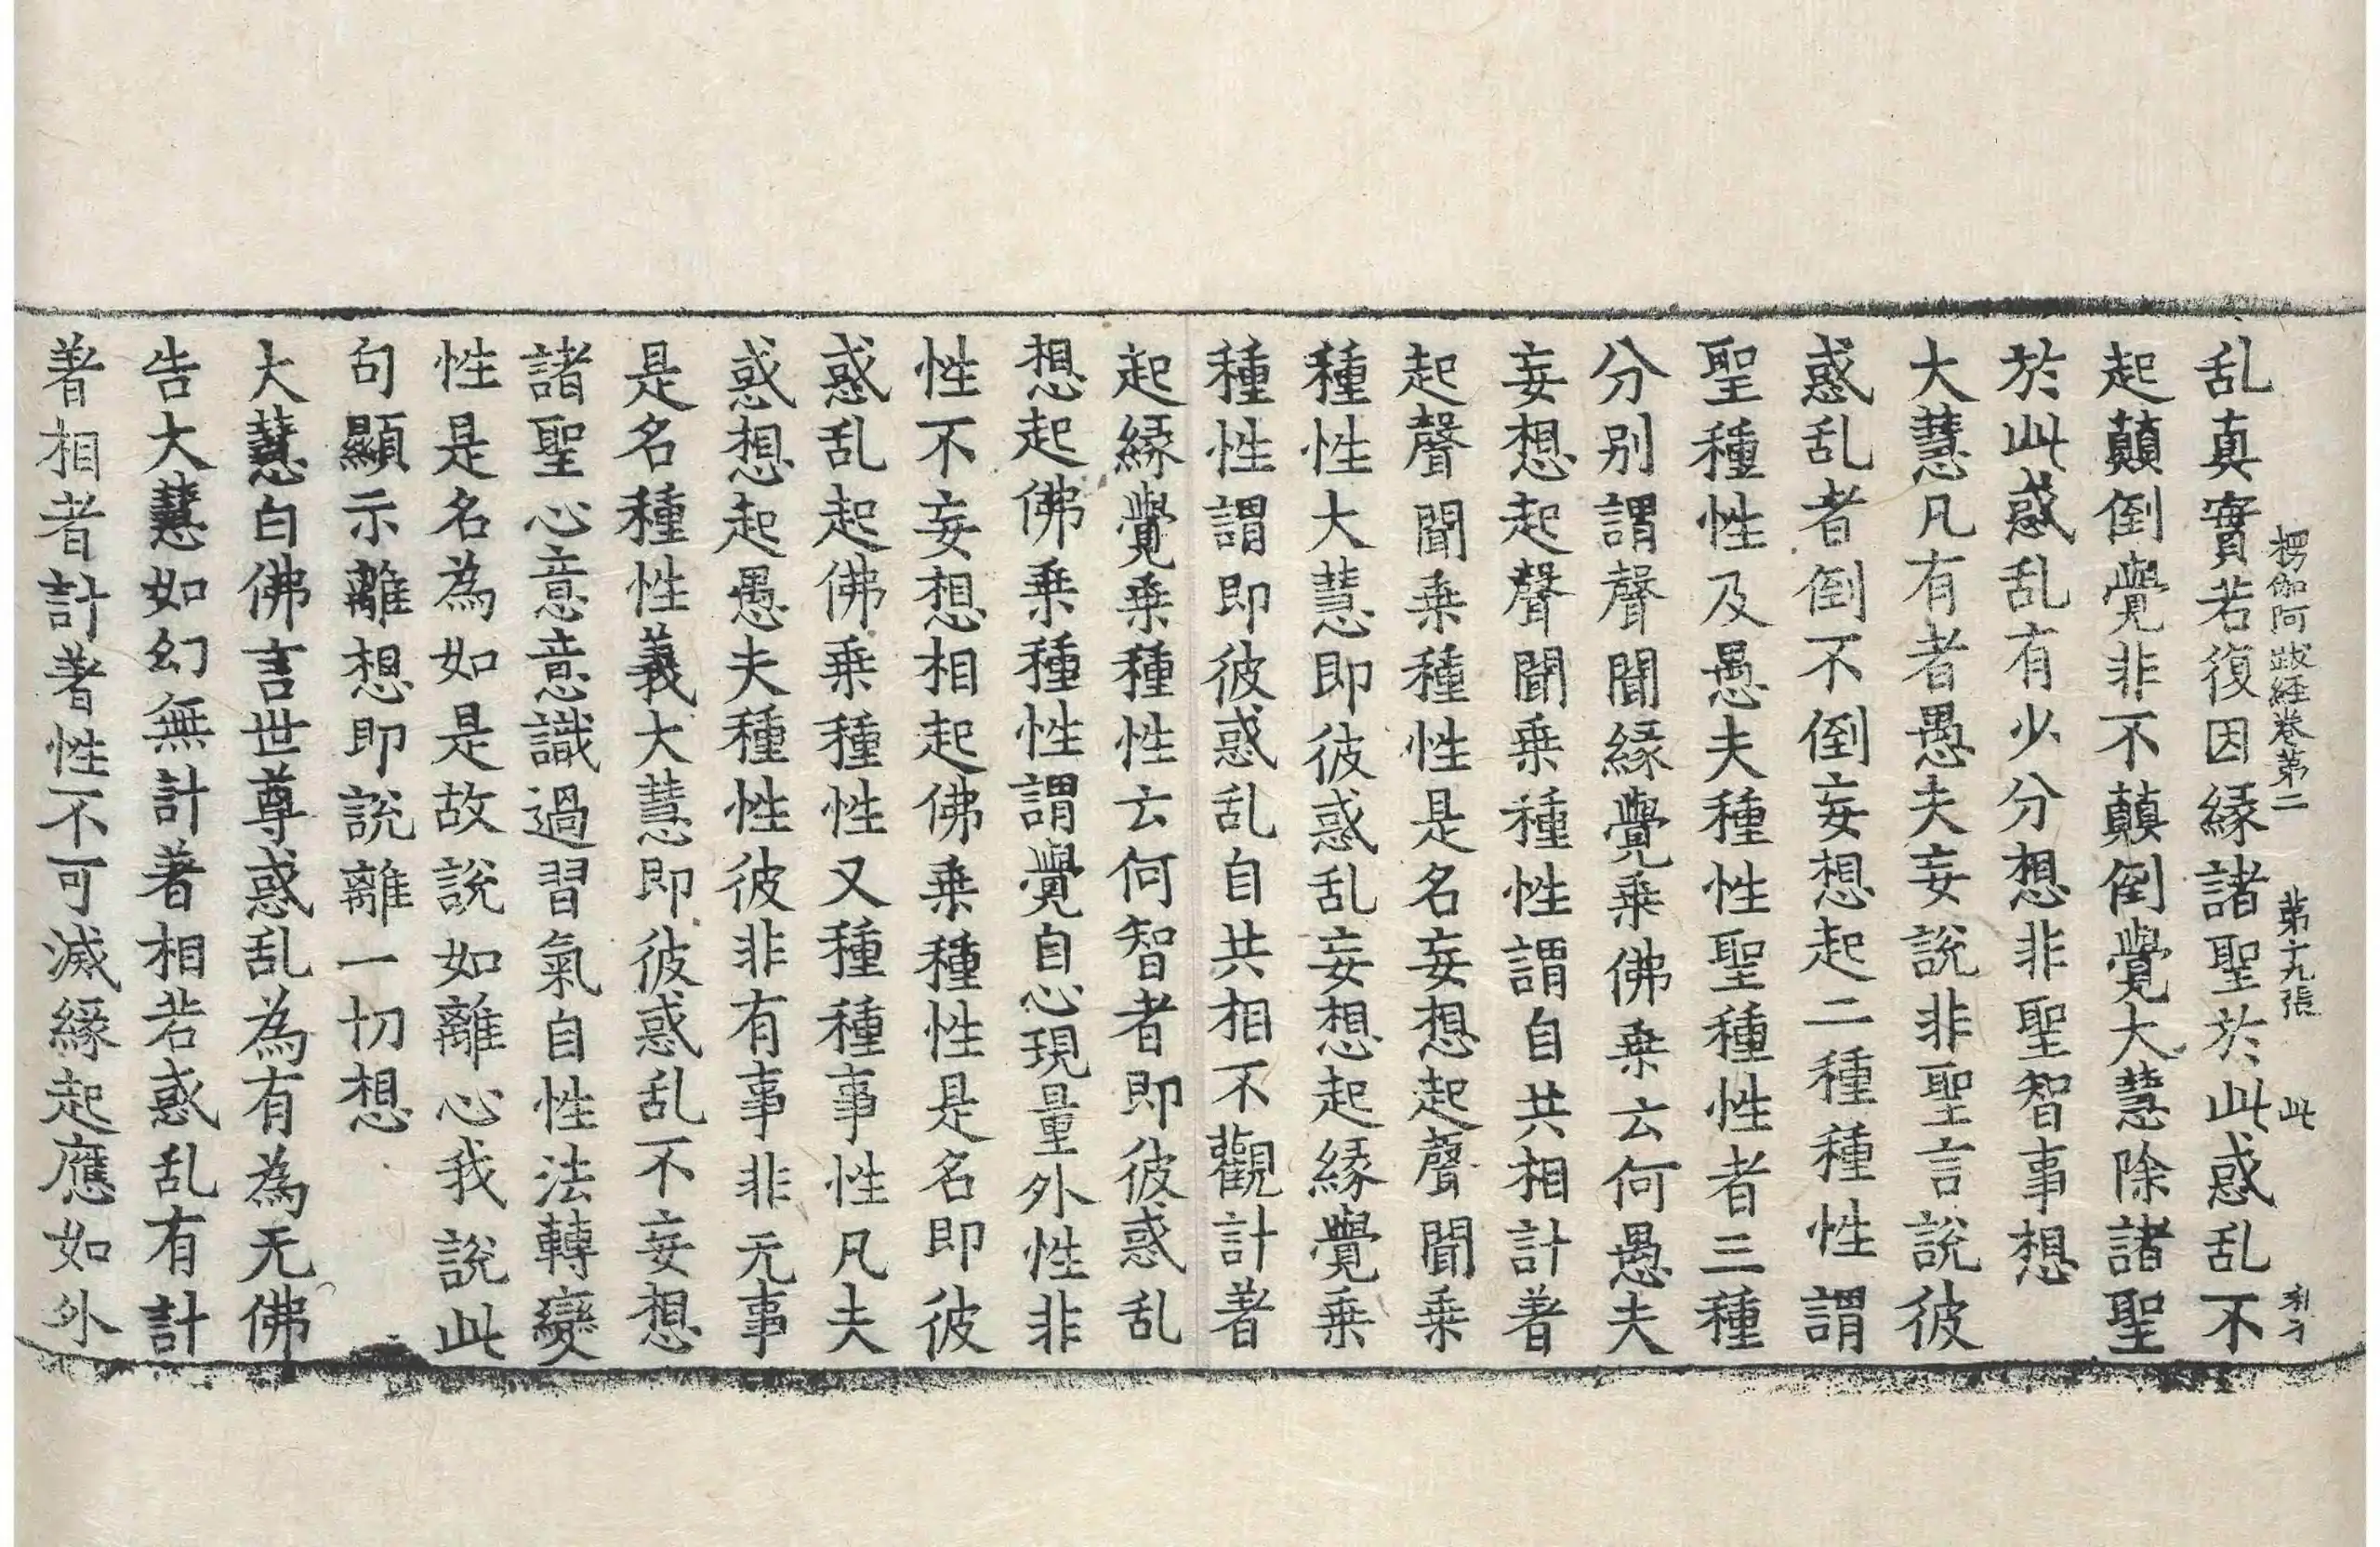 楞伽阿跋経巻第二 第十九張 此
乱真實若復因縁諸聖於此惑乱不
起顛倒覺非不顛倒覺大慧除諸聖
於此惑乱有少分想非聖智事想
大慧凡有者愚夫妄說非聖言說彼
惑乱者倒不倒妄想起二種種性謂
聖種性及愚夫種性聖種性者三種
分別謂聲聞縁覺乗佛乗云何愚夫
妄想起聲聞乗種性謂自共相計著
起聲聞乗種性是名妄想起聲聞乗
種性大慧即彼惑乱妄想起縁覺乗
種性謂即彼惑乱自共相不觀計著
起縁覺乗種性云何智者即彼惑乱
想起佛乗種性謂覺自心現量外性非
性不妄想相起佛乗種性是名即彼
惑乱起佛乗種性又種種事性凡夫
惑想起愚夫種性彼非有事非无事
是名種性義大慧即彼惑乱不妄想
諸聖心意意識過習氣自性法轉變
性是名為如是故說如離心我說此
句顯示離想即說離一切想
大慧白佛言世尊惑乱為有為无佛
告大慧如幻無計著相若惑乱有計
著相者計著性不可滅縁起應如外